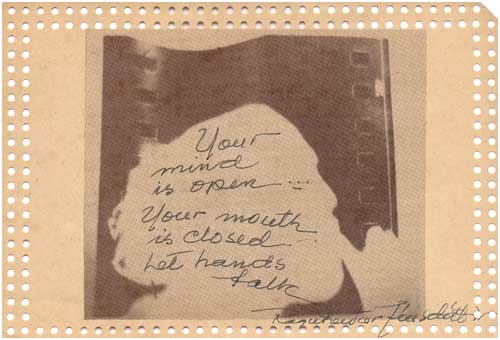 Your
mind
is open...
Your mouth
is closed...
Let hands
talk